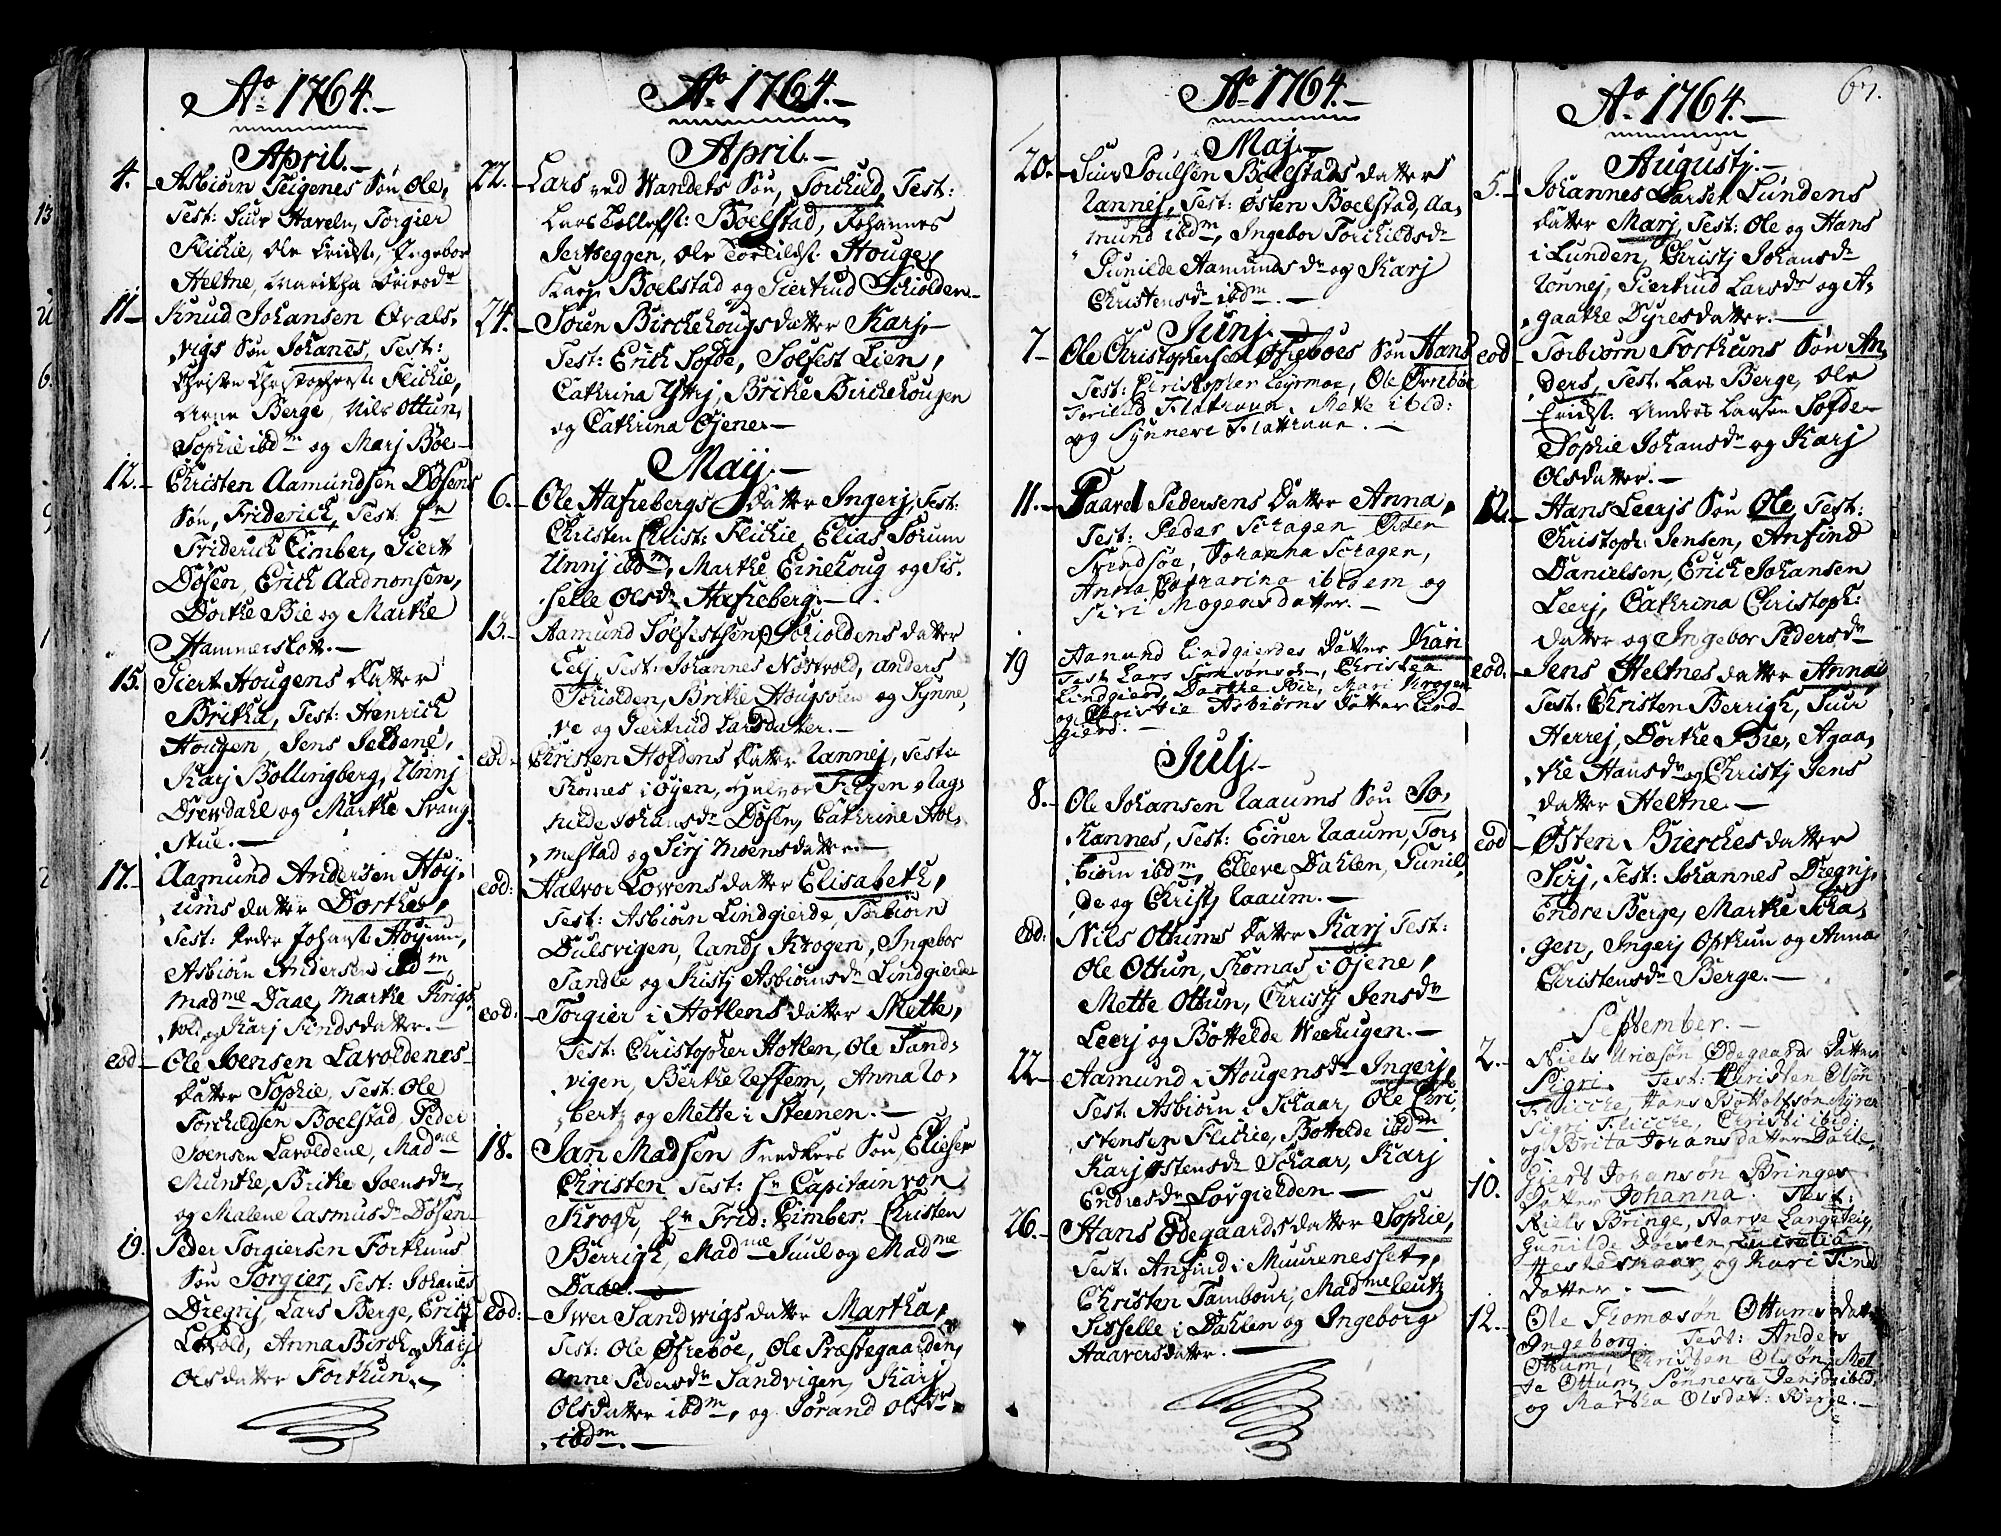 Ao 1764.
April.
4. Asbiørn Teigenes Søn Ole,
Test: Siur Haveln, Torgier
Flickie, Ole Ericks:, Ingebor
Heltne, Maritha
11 Knud Johansen Qvals-
vigs Søn Johanes, Test:
Christen Christophers: Flickie,
Arne Berge, Nils Ottun,
Sophie ibdm og Marj Bøe
12. Christen Aamundsen Døsens
Søn, Friderick, Test: Hr
Friderich Cimber, Giert
Døsen, Erick Aadnonsen,
Dorthe Bie og Marthe
Hammerslott.
15. Giert Hougens datter
Britha, Test: Henrick
Hougen, Jens Jeldene,
Karj Bollingberg, Unnj
Drewdahl og Marthe Svang-
stue.
17. Aamund Andersen Høy-
ums datter Dorthe,
Test: Peder Johans: Høyum,
Asbiørn Andersen ibdm,
Madme Daae, Marthe Krigs-
vold og Karj datter.
eod Ole Joensen Lavoldenes
datter Sophie, Test: Ole
Torchildsen Boelstad, Peder
Joensen Lavoldene, Madme
Munthe, Brithe Joensdr
og Malene Rasmusdr Døsen
19. Peder Torgiersen Forthuns
Søn Torgier, Test: Johanes
Dregnj, Lars Berge, Erich
Løvold, Anna Birch og Karj
Olsdatter Forthun.
Ao 1764.
April.
22. Lars ved Vandets Søn, Torchild, Test:
Lars Tollefs: Boelstad, Johannes
Jertseggen, Ole Torkilds: Houge,
Karj Boelstad og Giertrud Schiolden
24. Søren Birchehougs datter Karj
Test: Erich Sofde, Solfest Lien,
Cathrina Yttrj, Brithe Birchehougen
og Cathrina Øjene.
Maij.
6. Ole Hafsebergs datter Ingerj, Test:
Christen Christ: Flickie, Elias Sorum
Unnj ibdm, Marthe Einehoug og Sis-
selle Olsdr Hafseberg.
13. Aamund Solfestsen Schioldens datter
Eli, Test: Johannes Nostvold, Anders
Schiolden, Brithe Hougsolen og Synne-
ve og Giertrud Larsdatter.
eod: Christen Hofdens datter Rannej, Teste
Thomes i øyen, Halvor Teigen, Rag-
nilde Johansdr Døsen, Cathrine Hol-
mestad og Sirj Moensdatter.
eod: Halvor Løvens datter Elisabeth,
Test: Asbiørn Lindgierde, Torbiørn
Dulsvigen, Randj Krogen, Ingebor
Tandle og Kristj Asbiørnsdr Lindgierde
eod: Torgier i Hotlens datter Mette,
Test: Christopher Hotlen, Ole Sand-
vigen, Berthe Reffem, Anna Ro-
bertz og Mette i Steenen.
18. Jan Madsen Snedkers Søn, Elieser
Christen Test: Hr Capitain von
Krogh, Hr Frid: Cimber. Christen
Berrigh, Madme Juul og Madme
Daae.
eod: Iwer Sandwigs datter Martha,
Test: Ole Øfrebøe, Ole Præstegaarden,
Anne Pedersdr Sandvigen, Karj
Olsdatter ibdm, og Jorand Olsdr
ibdm.
Ao 1764.
Maj.
20. Siur Poulsen Boelstads datter
Rannej, Test: Østen Boelstad, Aa-
mund ibdm, Ingebor Torchildsdr
Gunilde Aamundsdr og Karj
Christensdr ibdm.
Junj.
7 Ole Christophersen Øfreboes Søn Hans
Test: Christopher Leyrmoe, Ole Øvrebøe
Torchild Flatraun, Mette ibid:
og Synneve Flatraun.
11. Paavel Pedersens Datter Anna,
Test: Peder Schagen Østen
Svindsøe, Johanna Schagen,
Anna Catharina ibidem og
Siri Mogensdatter.
19 Aamund Lindgierdes Datter Kari
Test Lars Samsønsøn, Christen
Lindgierd, Dorthe Bie, Mari Krogen
og Christie Asbiørns datter Lind-
gierd.
Julj.
8. Ole Johansen Raaums Søn Jo-
hannes, Test: Einer Raaum, Tor-
biørn ibdm, Elleve Dahlen, Gunil-
de og Christj Raaum.
eod: Nils Ottums datter Karj Test:
Ole Ottun, Thomas i Øjene,
Mette Ottun, Christj Jensdr
Leerj og Bottelde Weehugen.
22 Aamund i Hougens dr Ingerj,
Test Asbiørn i Schaar, Ole Chri-
stensen Flickie, Bottelde ibdm
Karj Østensdr Schaar, Karj
Endresdr Lovgielden
26. Hans Ødegaards datter Sophie,
Test: Anfind i Muurenesset,
Christen Tambour, Madme Leutz
Sisselle i Dahlen og Ingeborg
Haaversdatter.
67.
Ao 1764.
Augustj.
5. Johannes Larsen Lundens
datter Marj, Test: Ole og Hans
i Lunden, Christj Johansdr
Ronnej, Giertrud Larsdr og A-
gaathe Dyresdatter.
eod Torbiørn Forthuns Søn An-
ders, Test: Lars Berge, Ole
Ericks: Anders Larsen Sofde
Sophie Johansdr og Karj
Olsdatter.
12. Hans Leerjs Søn Ole, Test:
Christoph: Jensen, Anfind
Danielsen, Erich Johansen
Leerj, Cathrina Christoph:
datter og Ingebor Pedersdr
eod. Jens Heltnes datter Anna
Test: Christen Berrigh, Siur
Herrej, Dorthe Bie, Agaa-
the Hansdr og Christj Jens
datter Heltne.
eod Østen Bierches datter
Sirj, Test: Johannes Dregnj,
Endre Berge, Marthe Scha-
gen, Ingerj Opthun og Anna
Christensdr Berge.
September.
2. Niels Uriæsøn Ødegaards Datter
Sigri. Test: Christen Olsøn
Flicche, Hans Bottolfsøn
Sigri Flicche, Christi ibid:
og Brita Johansdatter Dahle.
10. Giert Johansøn Bringes
Datter Johanna. Test:
Niels Bringe, Aarve Langeteig,
Gunnilde Døsen, Lucretia
Hesteskaar, og Kari
datter.
12. Ole Thomæsøn Ottums datter
Ingeborg Test: Anders
Ottum, Christen Olsøn, Met-
te Ottum, Sønneva Jensdr ibid:
og Martha Olsdat: Berge.